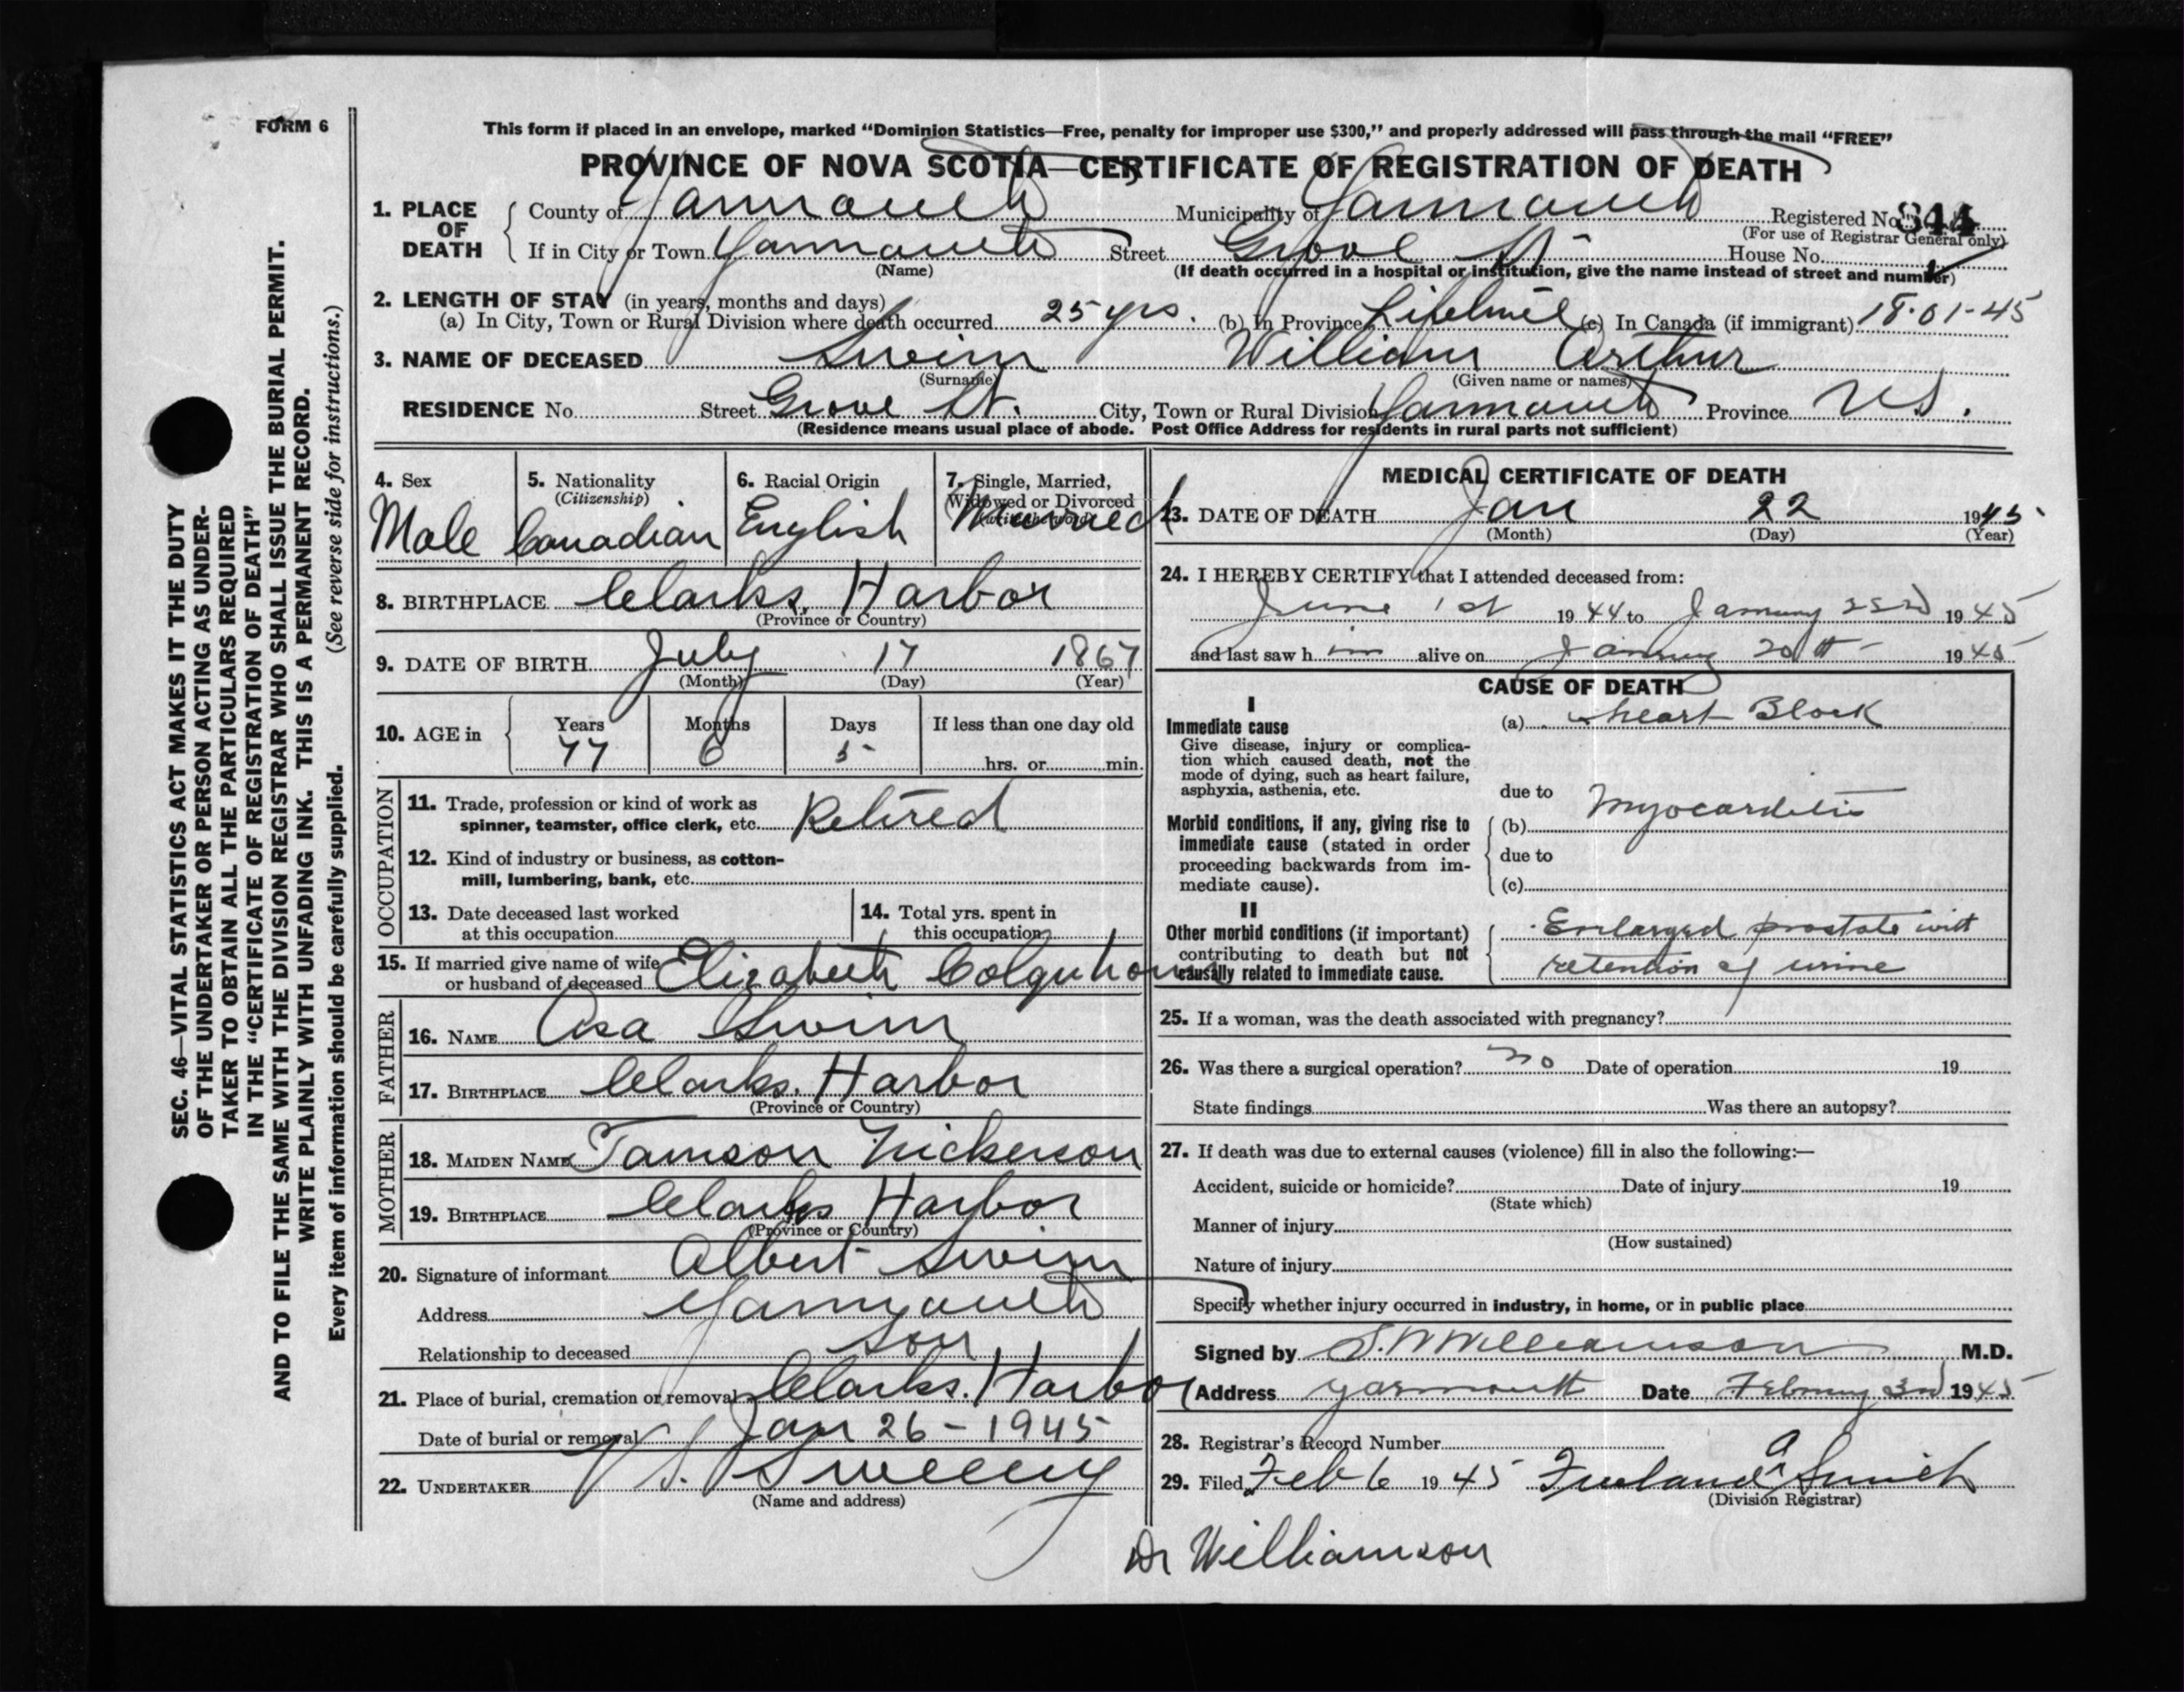 FORM 6
This form if placed in an envelope, marked "Dominion Statistics—Free, penalty for improper use $300," and properly addressed will pass through the mail "FREE"
PROVINCE OF NOVA SCOTIA—CERTIFICATE OF REGISTRATION OF DEATH
1. PLACE OF DEATH { County of Yarmouth Municipality of Yarmouth Registered No. 844
(For use of Registrar General only)
If in City or Town Yarmouth Street Grove St House No.
(Name) (If death occurred in a hospital or institution, give the name instead of street and number)
2. LENGTH OF STAY (in years, months and days)
(a) In City, Town or Rural Division where death occurred 25 yrs. (b) In Province Lifetime (c) In Canada (if immigrant) 18-01-45
3. NAME OF DECEASED Swim William Arthur
(Surname) (Given name or names)
RESIDENCE No. Street Grove St. City, Town or Rural Division Yarmouth Province N.S.
(Residence means usual place of abode. Post Office Address for residents in rural parts not sufficient)
4. Sex 5. Nationality 6. Racial Origin 7. Single, Married,
(Citizenship) Widowed or Divorced
Male Canadian English Married
8. BIRTHPLACE Clarks Harbor
(Province or Country)
9. DATE OF BIRTH July 17 1867
(Month) (Day) (Year)
10. AGE in { Years Months Days If less than one day old
77 6 5 hrs. or min.
OCCUPATION
11. Trade, profession or kind of work as
spinner, teamster, office clerk, etc. Retired
12. Kind of industry or business, as cotton-
mill, lumbering, bank, etc.
13. Date deceased last worked
at this occupation
14. Total yrs. spent in
this occupation
15. If married give name of wife
or husband of deceased Elizabeth Colquhoun
FATHER
16. NAME Asa Swim
17. BIRTHPLACE Clarks Harbor
(Province or Country)
MOTHER
18. MAIDEN NAME Tamson Nickerson
19. BIRTHPLACE Clarks Harbor
(Province or Country)
20. Signature of informant Albert Swim
Address Yarmouth
Relationship to deceased Son
21. Place of burial, cremation or removal Clarks Harbor
Date of burial or removal Jan 26 - 1945
22. UNDERTAKER V S. Sweeny
(Name and address)
MEDICAL CERTIFICATE OF DEATH
23. DATE OF DEATH Jan 22 1945
(Month) (Day) (Year)
24. I HEREBY CERTIFY that I attended deceased from:
June 1st 1944 to January 22nd 1945
and last saw him alive on January 20th 1945
CAUSE OF DEATH
I
Immediate cause (a) Heart Block
Give disease, injury or complica-
tion which caused death, not the
mode of dying, such as heart failure,
asphyxia, asthenia, etc.
due to
Morbid conditions, if any, giving rise to
immediate cause (stated in order
proceeding backwards from im-
mediate cause).
(b) Myocarditis
due to
(c)
II
Other morbid conditions (if important)
contributing to death but not
causally related to immediate cause.
Enlarged prostate with
retention of urine
25. If a woman, was the death associated with pregnancy?
26. Was there a surgical operation? no Date of operation 19
State findings Was there an autopsy?
27. If death was due to external causes (violence) fill in also the following:—
Accident, suicide or homicide? Date of injury 19
(State which)
Manner of injury
(How sustained)
Nature of injury
Specify whether injury occurred in industry, in home, or in public place
Signed by S. W Williamson M.D.
Address Yarmouth Date February 3rd 1945
28. Registrar's Record Number
29. Filed Feb 6 1945 Freland A Smith
(Division Registrar)
Dr Williamson
SEC. 46—VITAL STATISTICS ACT MAKES IT THE DUTY
OF THE UNDERTAKER OR PERSON ACTING AS UNDER-
TAKER TO OBTAIN ALL THE PARTICULARS REQUIRED
IN THE "CERTIFICATE OF REGISTRATION OF DEATH"
AND TO FILE THE SAME WITH THE DIVISION REGISTRAR WHO SHALL ISSUE THE BURIAL PERMIT.
WRITE PLAINLY WITH UNFADING INK. THIS IS A PERMANENT RECORD.
Every item of information should be carefully supplied. (See reverse side for instructions.)